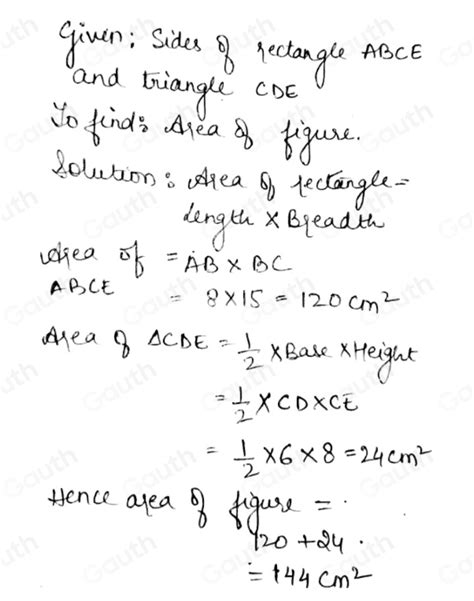 Given: Sides of rectangle ABCE
and triangle CDE
To find: Area of figure.
Solution: Area of rectangle =
Length × Breadth
Area of = AB × BC
ABCE
= 8×15 = 120 cm²
Area of ΔCDE = 1/2 × Base × Height
= 1/2 × CD × CE
= 1/2 × 6 × 8 = 24 cm²
Hence area of figure = .
120 + 24 .
= 144 cm²